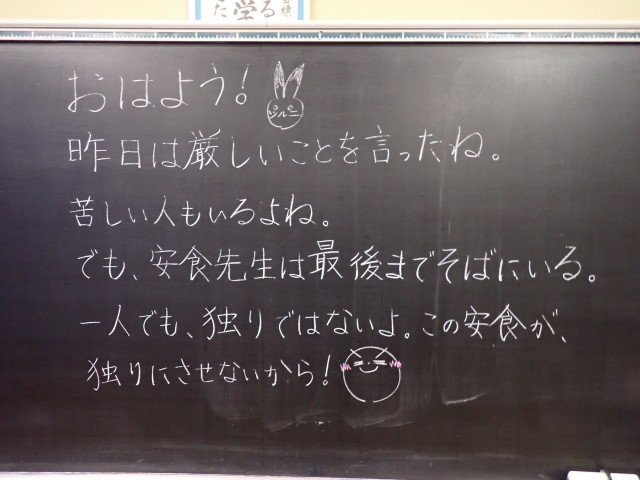 た学る
おはよう!
昨日は厳しいことを言ったね。
苦しい人もいるよね。
でも、安食先生は最後までそばにいる。
一人でも、独りではないよ。この安食が、
独りにさせないから!